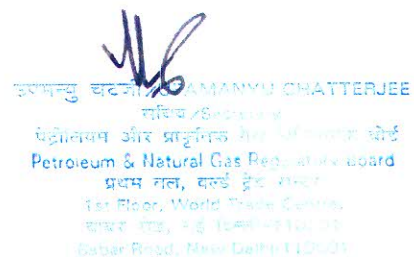 उपमन्यु चटर्जी/UPAMANYU CHATTERJEE
सचिव/Secretary
पेट्रोलियम और प्राकृतिक गैस बोर्ड
Petroleum & Natural Gas Regulatory Board
प्रथम तल, वर्ल्ड ट्रेड सेन्टर
1st Floor, World Trade Centre,
बाबर रोड, नई दिल्ली-110001
Babar Road, New Delhi-110001